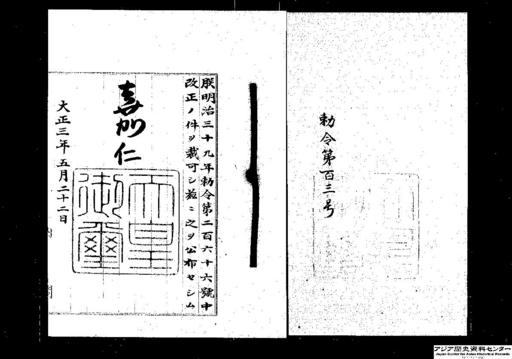 勅令第百三号
朕明治三十九年勅令第二百六十六號中
改正ノ件ヲ裁可シ茲ニ之ヲ公布セシム
嘉仁
天皇
御璽
大正三年五月二十二日
アジア歴史資料センター
Japan Center for Asian Historical Records